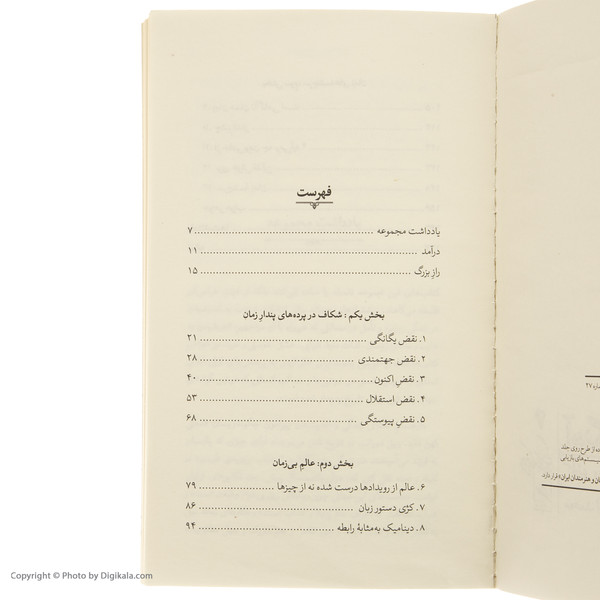 فهرست
یادداشت مجموعه ........ ۷
درآمد ........ ۱۱
راز بزرگ ........ ۱۵
بخش یکم: شکاف در پرده‌های پندار زمان
۱. نقض یگانگی ........ ۲۱
۲. نقض جهتمندی ........ ۲۸
۳. نقضِ اکنون ........ ۴۰
۴. نقض استقلال ........ ۵۳
۵. نقضِ پیوستگی ........ ۶۸
بخش دوم: عالمِ بی‌زمان
۶. عالم از رویدادها درست شده نه از چیزها ........ ۷۹
۷. کژی دستور زبان ........ ۸۶
۸. دینامیک به‌مثابهٔ رابطه ........ ۹۴
ه از طرح روی جلد
سیستم‌های بازیابی
ن و هنرمندان ایران» قرار دارد.
Copyright © Photo by Digikala.com